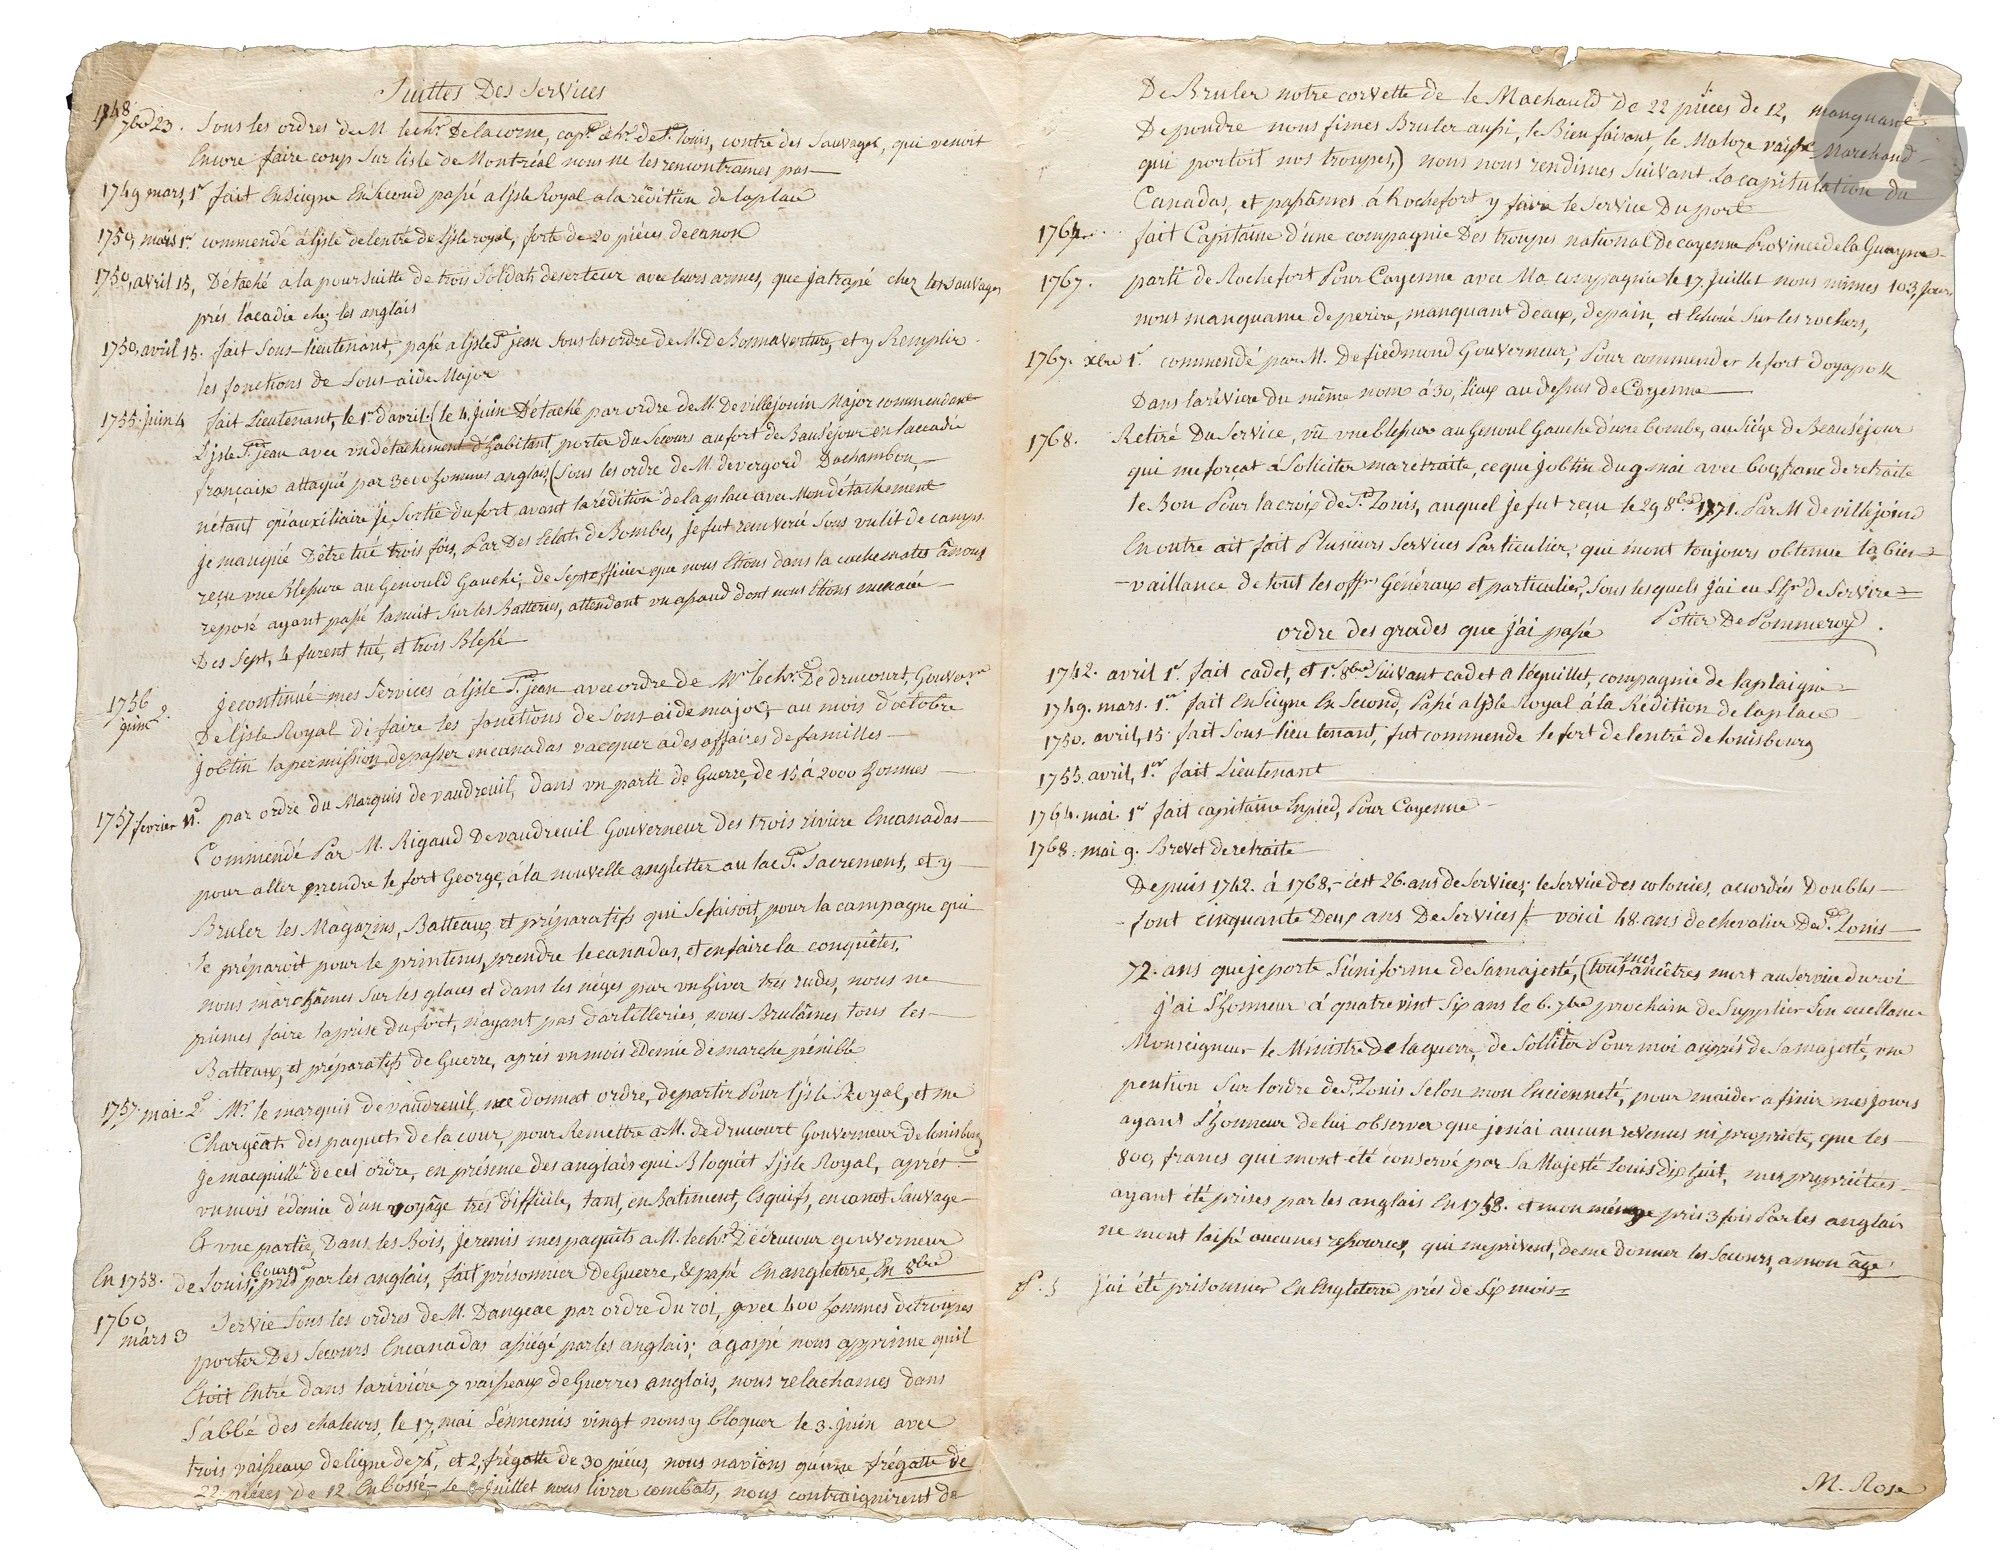 Suittes Des Services
1748
7bre 23. Sous les ordres de M. lechr. Delacorne, capne. chr. de St. louis, contre des Sauvages, qui venoit
Encore faire coup Sur l'isle de Montréal nous ne les remontrames pas
1749 mars, 1r fait Enseigne En Second passé a l'jsle Royal a la rédition de la place
1750, mars 1r commendé à l'jsle de lentré de l'jsle royal, forte de 20 piéces de canon
1750, avril 15, Détaché a la pour Suitte de trois Soldats deserteur avec leurs armes, que jatrapé chez les Sauvages
prés l'acadie chez les anglais
1750, avril 15. fait Sous-lieutenant, passé a l'jsle St. jean Sous les ordre de M. De Bonnaventure, et y Remplir
les fonctions de Sous-aide Major
1755. juin 4 fait Lieutenant, le 1r d'avril. (le 4 juin Détaché par ordre de M. De villejouin Major commendant
L'jsle St. jean avec un détachement d'habitant, porter du Secours au fort de Bauséjour en laccadie
francaise attaqué par 3000 hommes anglais, (Sous les ordre de M. de vergord Duchambon,
n'étant qu'auxiliaire je Sortie du fort avant la rédition de la place avec Mon détachement
Je manqué D'être tué trois fois, Par Des Eclats de Bombes, je fut renversé Sous un lit de camps
reçu une Blessure au Genould Gauche, de Sept officier que nous Etions dans la cachemates à nous
reposé ayant passé la nuit Sur les Batteries, attendant un assaud dont nous Etions menacé
Des Sept, 4 furent tué, et trois Blessé
1756
juin 2. Je continué mes Services à l'jsle St. jean avec ordre de Mr. lechr. De drucourt, Gouver.r
De l'jsle Royal di faire les fonctions de Sous-aide major, au mois d'octobre
joblin la permission de passer en canadas vacquer à des affaires de familles
1757 fevrier 11. par ordre du Marquis de vaudreuil, dans un parti de Guerre, de 15 à 2000 hommes
Commendé Par M. Rigaud De vaudreuil Gouverneur des trois riviere En canadas
pour aller prendre le fort George, à la nouvelle angletter au lac St. Sacrement, et y
Bruler les Magazins, Batteaux, et préparatifs qui Se faisoit, pour la campagne qui
Se préparoit pour le printems, prendre le canadas, et en faire la conquêtes,
nous màrchâmes Sur les glaces et dans les néges par un hiver tres rudes, nous ne
pumes faire la prise du fort, n'ayant pas d'artilleries, nous Brulâmes tous les
Batteaux, et préparatifs de Guerre, aprés un mois Edemie de marche pénible
1757. mai. 2. Mr. le marquis de vaudreuil, me donnat ordre, de partir Pour l'jsle Royal, et me
Chargéat des paquet de la cour, pour Remettre a M. de drucourt Gouverneur de louisbourg
Je macquitté de cet ordre, en présence des anglais qui Bloquét l'jsle Royal, aprés
un mois édemie d'un voyâge trés difficile, tant, en Batiment, Esquifs, en canot Sauvage
Et une partie, Dans les Bois, je remis mes paquets a M. lechr. De drucour gouverneur
En 1758. de Louis,bourg pris par les anglais, fait prisonnier de Guerre, & passé En angleterre, En 8bre
1760
mars 3 Servie Sous les ordres de M. Dangeac par ordre du roi, avec 400 hommes de troupes
porter Des Secours En canadas assiégé par les anglais; a gaspé nous apprime qu'il
Etoit Entré dans la riviére 7 vaisseaux de Guerres anglais, nous relachames dans
L'abbé des chaleurs, le 17, mai L'ennemis vingt nous y bloquer le 3. juin avec
trois vaisseaux de ligne de 74, et 2, frégatte de 30 piéces, nous navions qu'une frégatte de
22 piéces de 12 Enbossé, le juillet nous livrer combats, nous contraignirent de
De Bruler notre corvette de le Machauld De 22 piéces de 12, manquant
De poudre nous fimes Bruler aussi, le Bien faisant, le Maloze vaiss. Marchand
qui portoit nos troupes,) nous nous rendimes Suivant La capitulation du
Canadas, et passâmes á Rochefort y faire le Service Du port
1764. fait Capitaine d'une compagnie Des troupes national De cayenne Province de la Guayne
1767. parti de Rochefort Pour Cayenne avec Ma compagnie le 17. juillet nous mimes 103, jours
nous manquame de perire, manquant d'eau, de pain, et Echoué Sur les rochers,
1767. xbre 1r. commendé par M. De fiedmond Gouverneur, Pour commender le fort d'oyapok
Dans la riviere du même nom á 30, lieux au dessus de Cayenne
1768. Retiré Du Service, vû une blessure au Genoul Gauche d'une bombe, au Siége de Beauséjour
qui me forçat á Soliciter ma retraite, ce que j'obtin du 9 mai avec 600, franc de retraite
le Bon Pour la croix de St. Louis, auquel je fut reçu le 29 8bre 1771. Par M de villejoind
En outre ait fait Plusieurs Services Particulier, qui mont toujours obtenue la bien
vaillance de tout les offrs. Généraux et particulier, Sous lesquels j'ai eu L'hr de Servire
Potier De Pommeroy
ordre des grades que j'ai passé
1742. avril 1r. fait cadet, et 1r. 8bre Suivant cadet a l'éguillet, compagnie de la plaigne
1749. mars. 1er fait Enseigne En Second, Passé a l'jsle Royal á la Rédition de la place
1750. avril, 15. fait Sous-lieu tenant, fut commende le fort de lentré de louisbourg
1755. avril, 1er. fait Lieutenant
1764. mai. 1er fait capitaine En pied, Pour Cayenne
1768. mai 9. Brevet de retraite
Depuis 1742. á 1768, c'est 26. ans de Services; le Service des colonies, accordées Doubles
font cinquante Deux ans De Services / voici 48 ans de chevalier De St. Louis
72. ans que je porte L'éniforme de Sa majesté, (tous mes ancêtres mort au Service du roi
J'ai L'honneur á quatre vint Six ans le 6. 7bre prochain de Supplier Son excellance
Monseigneur le Ministre de la guerre, de Solliter Pour moi auprés de Sa majesté, une
pention Sur l'ordre de St. Louis Selon mon Encienneté, pour m'aider a finir mes jours
ayant L'honneur de lui observer que je n'ai aucun revenus ni propriété, que les
800, francs qui mont été conservé par Sa Majesté Louis dix huit, mes propriétées
ayant été prises par les anglais En 1758. et mon ménage pris 3 fois Par les anglais
ne mont laissé aucunes ressources, qui me privent, de me donner les Secours, a mon âge
J'ai été prisonnier En Engleterre prés de Six mois
M. Rose